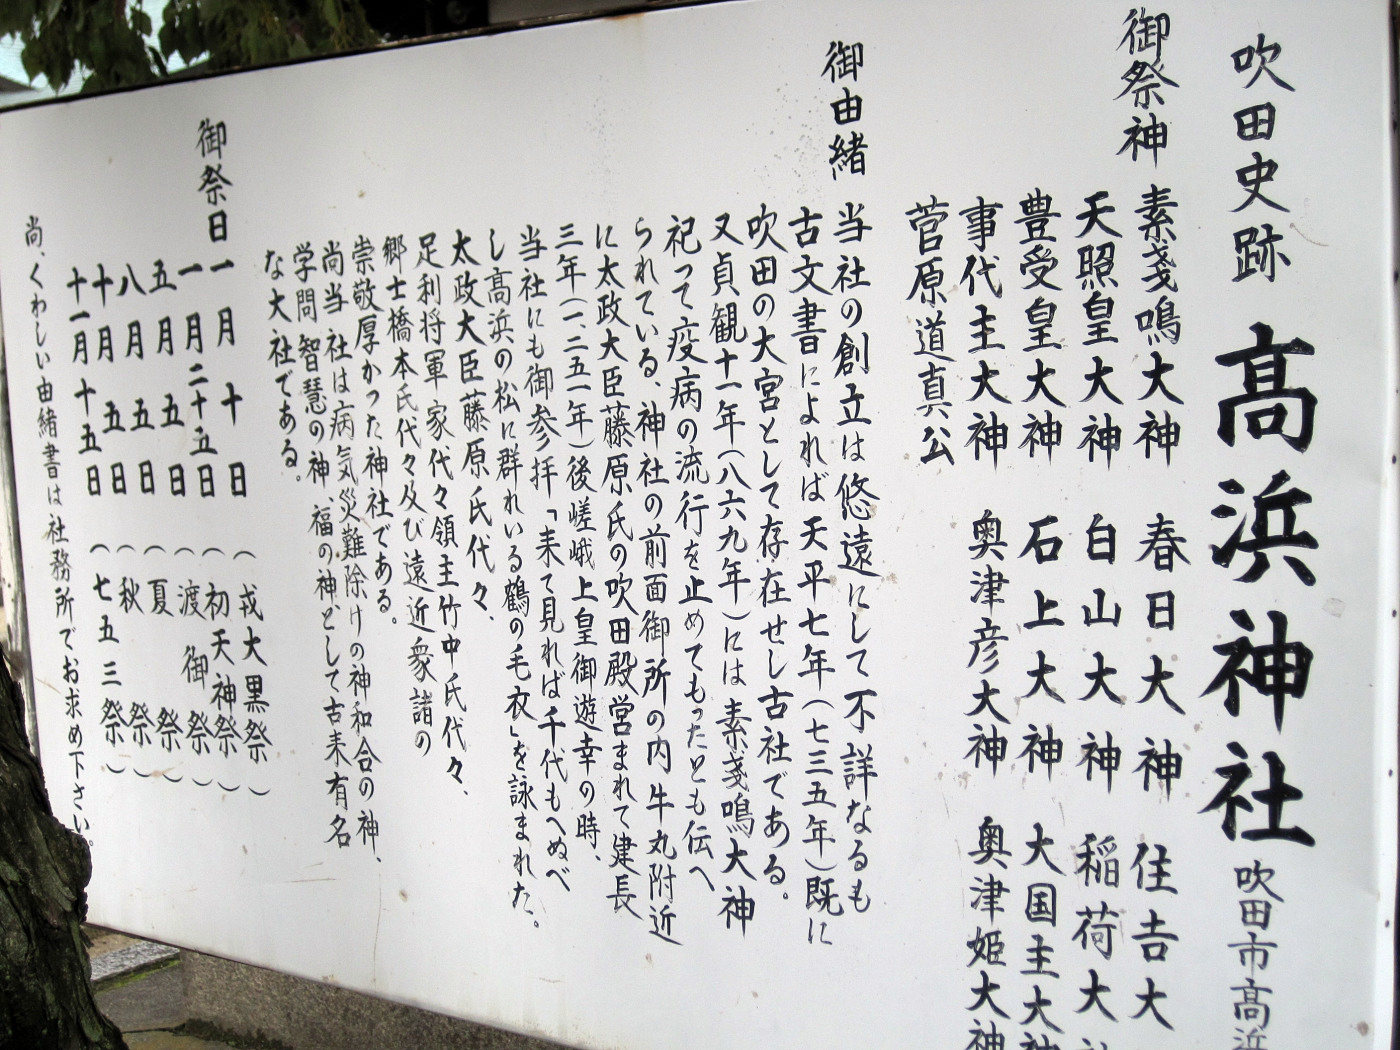 吹田史跡 髙浜神社 吹田市髙浜
御祭神 素戔鳴大神 春日大神 住吉大
天照皇大神 白山大神 稲荷大
豊受皇大神 石上大神 大国主大神
事代主大神 奥津彦大神 奥津姫大神
菅原道真公
御由緒 当社の創立は悠遠にして不詳なるも
古文書によれば天平七年(七三五年)既に
吹田の大宮として存在せし古社である。
又貞観十一年(八六九年)には素戔鳴大神
祀って疫病の流行を止めてもったとも伝へ
られている、神社の前面御所の内牛丸附近
に太政大臣藤原氏の吹田殿営まれて建長
三年(一二五一年)後嵯峨上皇御遊幸の時、
当社にも御参拝「来て見れば千代もへぬべ
し髙浜の松に群れいる鶴の毛衣」を詠まれた。
太政大臣藤原氏代々、
足利将軍家代々領主竹中氏代々、
郷士橋本氏代々及び遠近衆諸の
崇敬厚かった神社である。
尚当社は病気災難除けの神和合の神、
学問智慧の神、福の神、として古来有名
な大社である。
御祭日 一月十日 (戎大黒祭)
一月二十五日 (初天神祭)
五月五日 (渡御祭)
八月五日 (夏祭)
十月五日 (秋祭)
十一月十五日 (七五三祭)
尚、くわしい由緒書は社務所でお求め下さい。